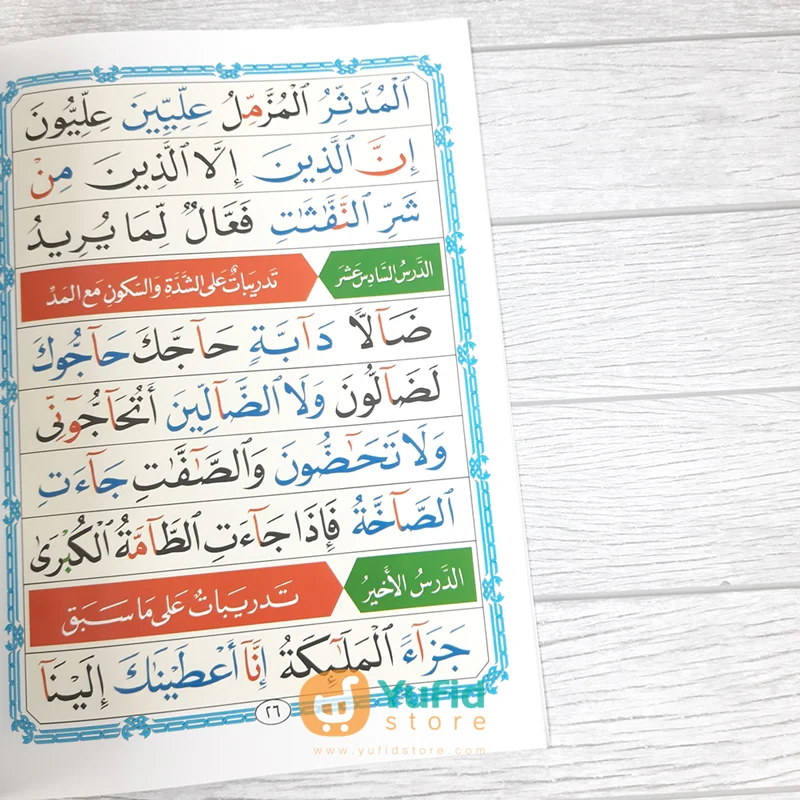 ٱلْمُدَّثِّرُ ٱلْمُزَّمِّلُ عِلِّيِّينَ عِلِّيُّونَ
إِنَّ ٱلَّذِينَ إِلَّا ٱلَّذِينَ مِنْ
شَرِّ ٱلنَّفَّٰثَٰتِ فَعَّالٌ لِّمَا يُرِيدُ
الدَّرْسُ السَّادِسَ عَشَرَ تَدْرِيبَاتٌ عَلَى الشَّدَّةِ وَالسُّكُونِ مَعَ المَدِّ
ضَآلًّا دَآبَّةٍ حَآجَّكَ حَآجُّوكَ
لَضَآلُّونَ وَلَا ٱلضَّآلِّينَ أَتُحَآجُّوٓنِّى
وَلَا تَحَٰٓضُّونَ وَٱلصَّٰٓفَّٰتِ جَآءَتِ
ٱلصَّآخَّةُ فَإِذَا جَآءَتِ ٱلطَّآمَّةُ ٱلْكُبْرَىٰ
الدَّرْسُ الأَخِيرُ تَدْرِيبَاتٌ عَلَى مَا سَبَقَ
جَزَآءً ٱلْمَلَٰٓئِكَةُ إِنَّآ أَعْطَيْنَٰكَ إِلَيْنَآ
٢٦
Yufid
store
www.yufidstore.com